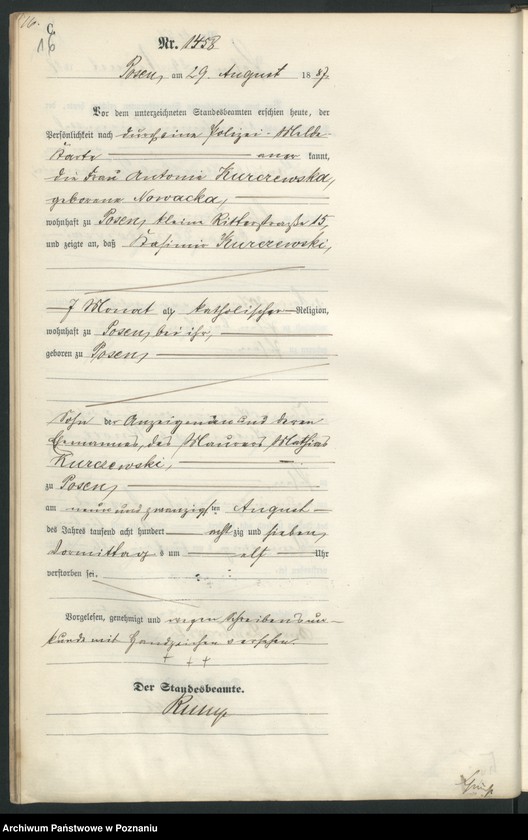 16.
C
16
Nr. 1458
Posen, am 29 August 1887.
Vor dem unterzeichneten Standesbeamten erschien heute, der
Persönlichkeit nach durch eine Polizei-Melde-
karte aner kannt,
die Frau Antonie Kurczewska,
geborene Nowacka,
wohnhaft zu Posen, kleine Ritterstraße 15,
und zeigte an, daß Kasimir Kurczewski,
7 Monat alt, katholischer Religion,
wohnhaft zu Posen, bei ihr,
geboren zu Posen,
Sohn der Anzeigenden und deren
Ehemannes, des Maurers Mathias
Kurczewski,
zu Posen,
am neun und zwanzigsten August
des Jahres tausend acht hundert acht zig und sieben,
Vormittags um elf Uhr
verstorben sei.
Vorgelesen, genehmigt und wegen Schreibensun-
kunde mit Handzeichen versehen.
+ + +
Der Standesbeamte.
Rump
Archiwum Państwowe w Poznaniu